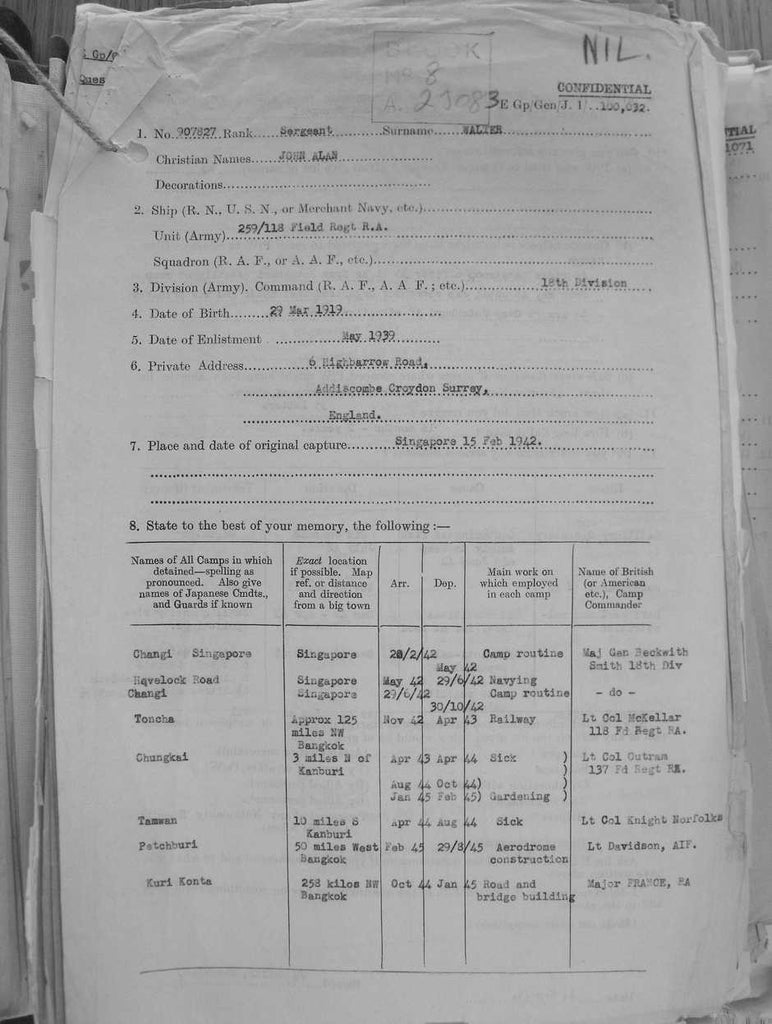 Gp/
Ques
BOOK
No 8
A. 23083
NIL.
CONFIDENTIAL
E Gp/Gen/J. 1/..100,032.
TIAL
1071
1. No. 907827 Rank Sergeant Surname WALTER
Christian Names JOHN ALAN
Decorations
2. Ship (R. N., U. S. N., or Merchant Navy, etc.)
Unit (Army) 259/118 Field Regt R.A.
Squadron (R. A. F., or A. A. F., etc.)
3. Division (Army). Command (R. A. F., A. A F. ; etc.) 18th Division
4. Date of Birth 29 Mar 1919
5. Date of Enlistment May 1939
6. Private Address 6 Highbarrow Road,
Addiscombe Croydon Surrey,
England.
7. Place and date of original capture Singapore 15 Feb 1942.
8. State to the best of your memory, the following :—
Names of All Camps in which Exact location Main work on Name of British
detained—spelling as if possible. Map Arr. Dep. which employed (or American
pronounced. Also give ref. or distance in each camp etc.), Camp
names of Japanese Cmdts., and direction Commander
and Guards if known from a big town
Changi Singapore Singapore 20/2/42 Camp routine Maj Gen Beckwith
May 42 Smith 18th Div
Havelock Road Singapore May 42 29/6/42 Navying
Changi Singapore 29/6/42 Camp routine - do -
30/10/42
Toncha Approx 125 Nov 42 Apr 43 Railway Lt Col McKellar
miles NW 118 Fd Regt RA.
Bangkok
Chungkai 3 miles N of Apr 43 Apr 44 Sick ) Lt Col Outram
Kanburi ) 137 Fd Regt RA.
Aug 44 Oct 44) )
Jan 45 Feb 45) Gardening )
Tamwan 10 miles S Apr 44 Aug 44 Sick Lt Col Knight Norfolks
Kanburi
Petchburi 50 miles West Feb 45 29/8/45 Aerodrome Lt Davidson, AIF.
Bangkok construction
Kuri Konta 258 kilos NW Oct 44 Jan 45 Road and Major FRANCE, RA
Bangkok bridge building